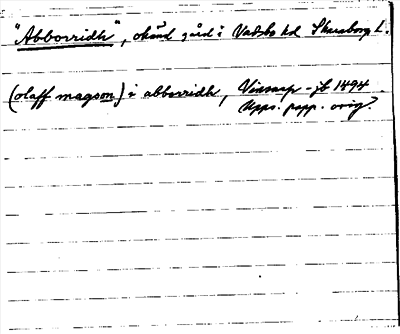 "Abborridh", okänd gård i Vadsbo hd Skaraborg L.
(olaff magson) i abborridh, Vinsarp-jb 1494.
Upps. papp. orig.